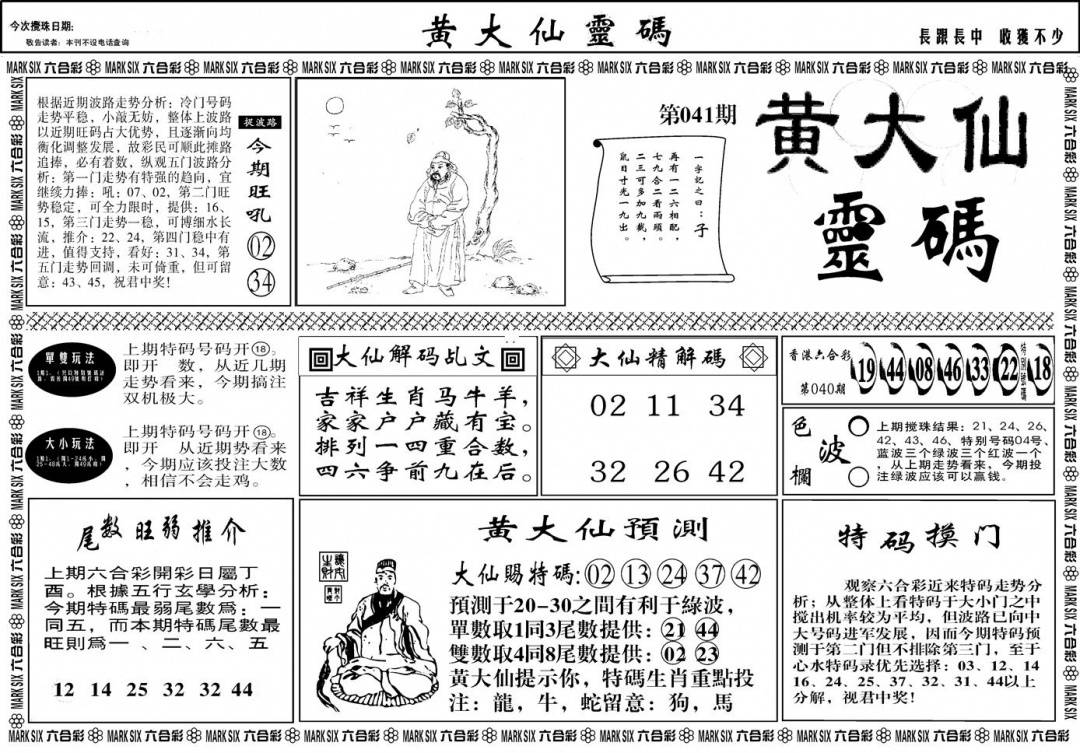 今次攪珠日期:
敬告读者：本刊不设电话查询
黄大仙靈碼
長跟長中 收獲不少
MARK SIX 六合彩 MARK SIX 六合彩 MARK SIX 六合彩 MARK SIX 六合彩 MARK SIX 六合彩 MARK SIX 六合彩 MARK SIX 六合彩 MARK SIX 六合彩 MARK SIX 六合彩 MARK SIX 六合彩 MARK SIX 六合彩
根据近期波路走势分析：冷门号码
走势平稳，小敲无妨，整体上波路
以近期旺码占大优势，且逐渐向均
衡化调整发展，故彩民可顺此摊路
追捧，必有着数，纵观五门波路分
析：第一门走势有特强的趋向，宜
继续力捧：吼：07、02，第二门旺
势稳定，可全力限时，提供：16、
15，第三门走势一稳，可博细水长
流，推介：22、24，第四门稳中有
进，值得支持，看好：31、34，第
五门走势回调，未可倚重，但可留
意：43、45，祝君中奖！
捉波路
今期旺吼
02
34
第041期
一字記之曰：子
再有一二六相配，
七九合二看兩頭。
二三可多加九載，
鼠目寸光一九出。
黄大仙
靈碼
單雙玩法
上期特码号码开⑱。
即开 数，从近几期
走势看来，今期搞注
双机极大。
大小玩法
上期特码号码开⑱。
即开 从近期势看来
，今期应该投注大数
，相信不会走鸡。
大仙解码乩文
吉祥生肖马牛羊，
家家户户藏有宝。
排列一四重合数，
四六争前九在后。
大仙精解碼
02 11 34
32 26 42
香港六合彩
第040期
19 44 08 46 33 22 特别號碼 18
色波欄
上期搅珠结果：21、24、26、
42、43、46、特别号码04号、
蓝波三个绿波三个红波一个
，从上期走势看来，今期投
注绿波应该可以赢钱。
尾数旺弱推介
上期六合彩開彩日屬丁
酉。根據五行玄學分析：
今期特碼最弱尾數爲：一
同五，而本期特碼尾數最
旺則爲一 、二、六、五
12 14 25 32 32 44
黄大仙預測
大仙賜特碼:02 13 24 37 42
預測于20-30之間有利于綠波，
單數取1同3尾數提供：21 44
雙數取4同8尾數提供：02 23
黄大仙提示你，特碼生肖重點投
注：龍，牛，蛇留意：狗，馬
特码摸门
观察六合彩近来特码走势分
析；从整体上看特码于大小门之中
搅出机率较为平均，但波路已向中
大号码进军发展，因而今期特码预
测于第二门但不排除第三门，至于
心水特码录优先选择：03、12、14
16、24、25、37、32、31、44以上
分解，视君中奖！
MARK SIX 六合彩 MARK SIX 六合彩 MARK SIX 六合彩 MARK SIX 六合彩 MARK SIX 六合彩 MARK SIX 六合彩 MARK SIX 六合彩 MARK SIX 六合彩 MARK SIX 六合彩 MARK SIX 六合彩 MARK SIX 六合彩